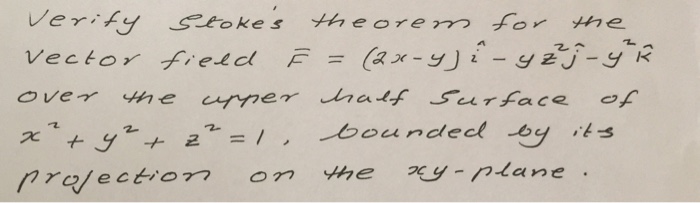 Verify Stoke's theorem for the
vector field F̅ = (2x-y) î - yz²ĵ - y²k̂
over the upper half surface of
x² + y² + z² = 1, bounded by its
projection on the xy-plane.